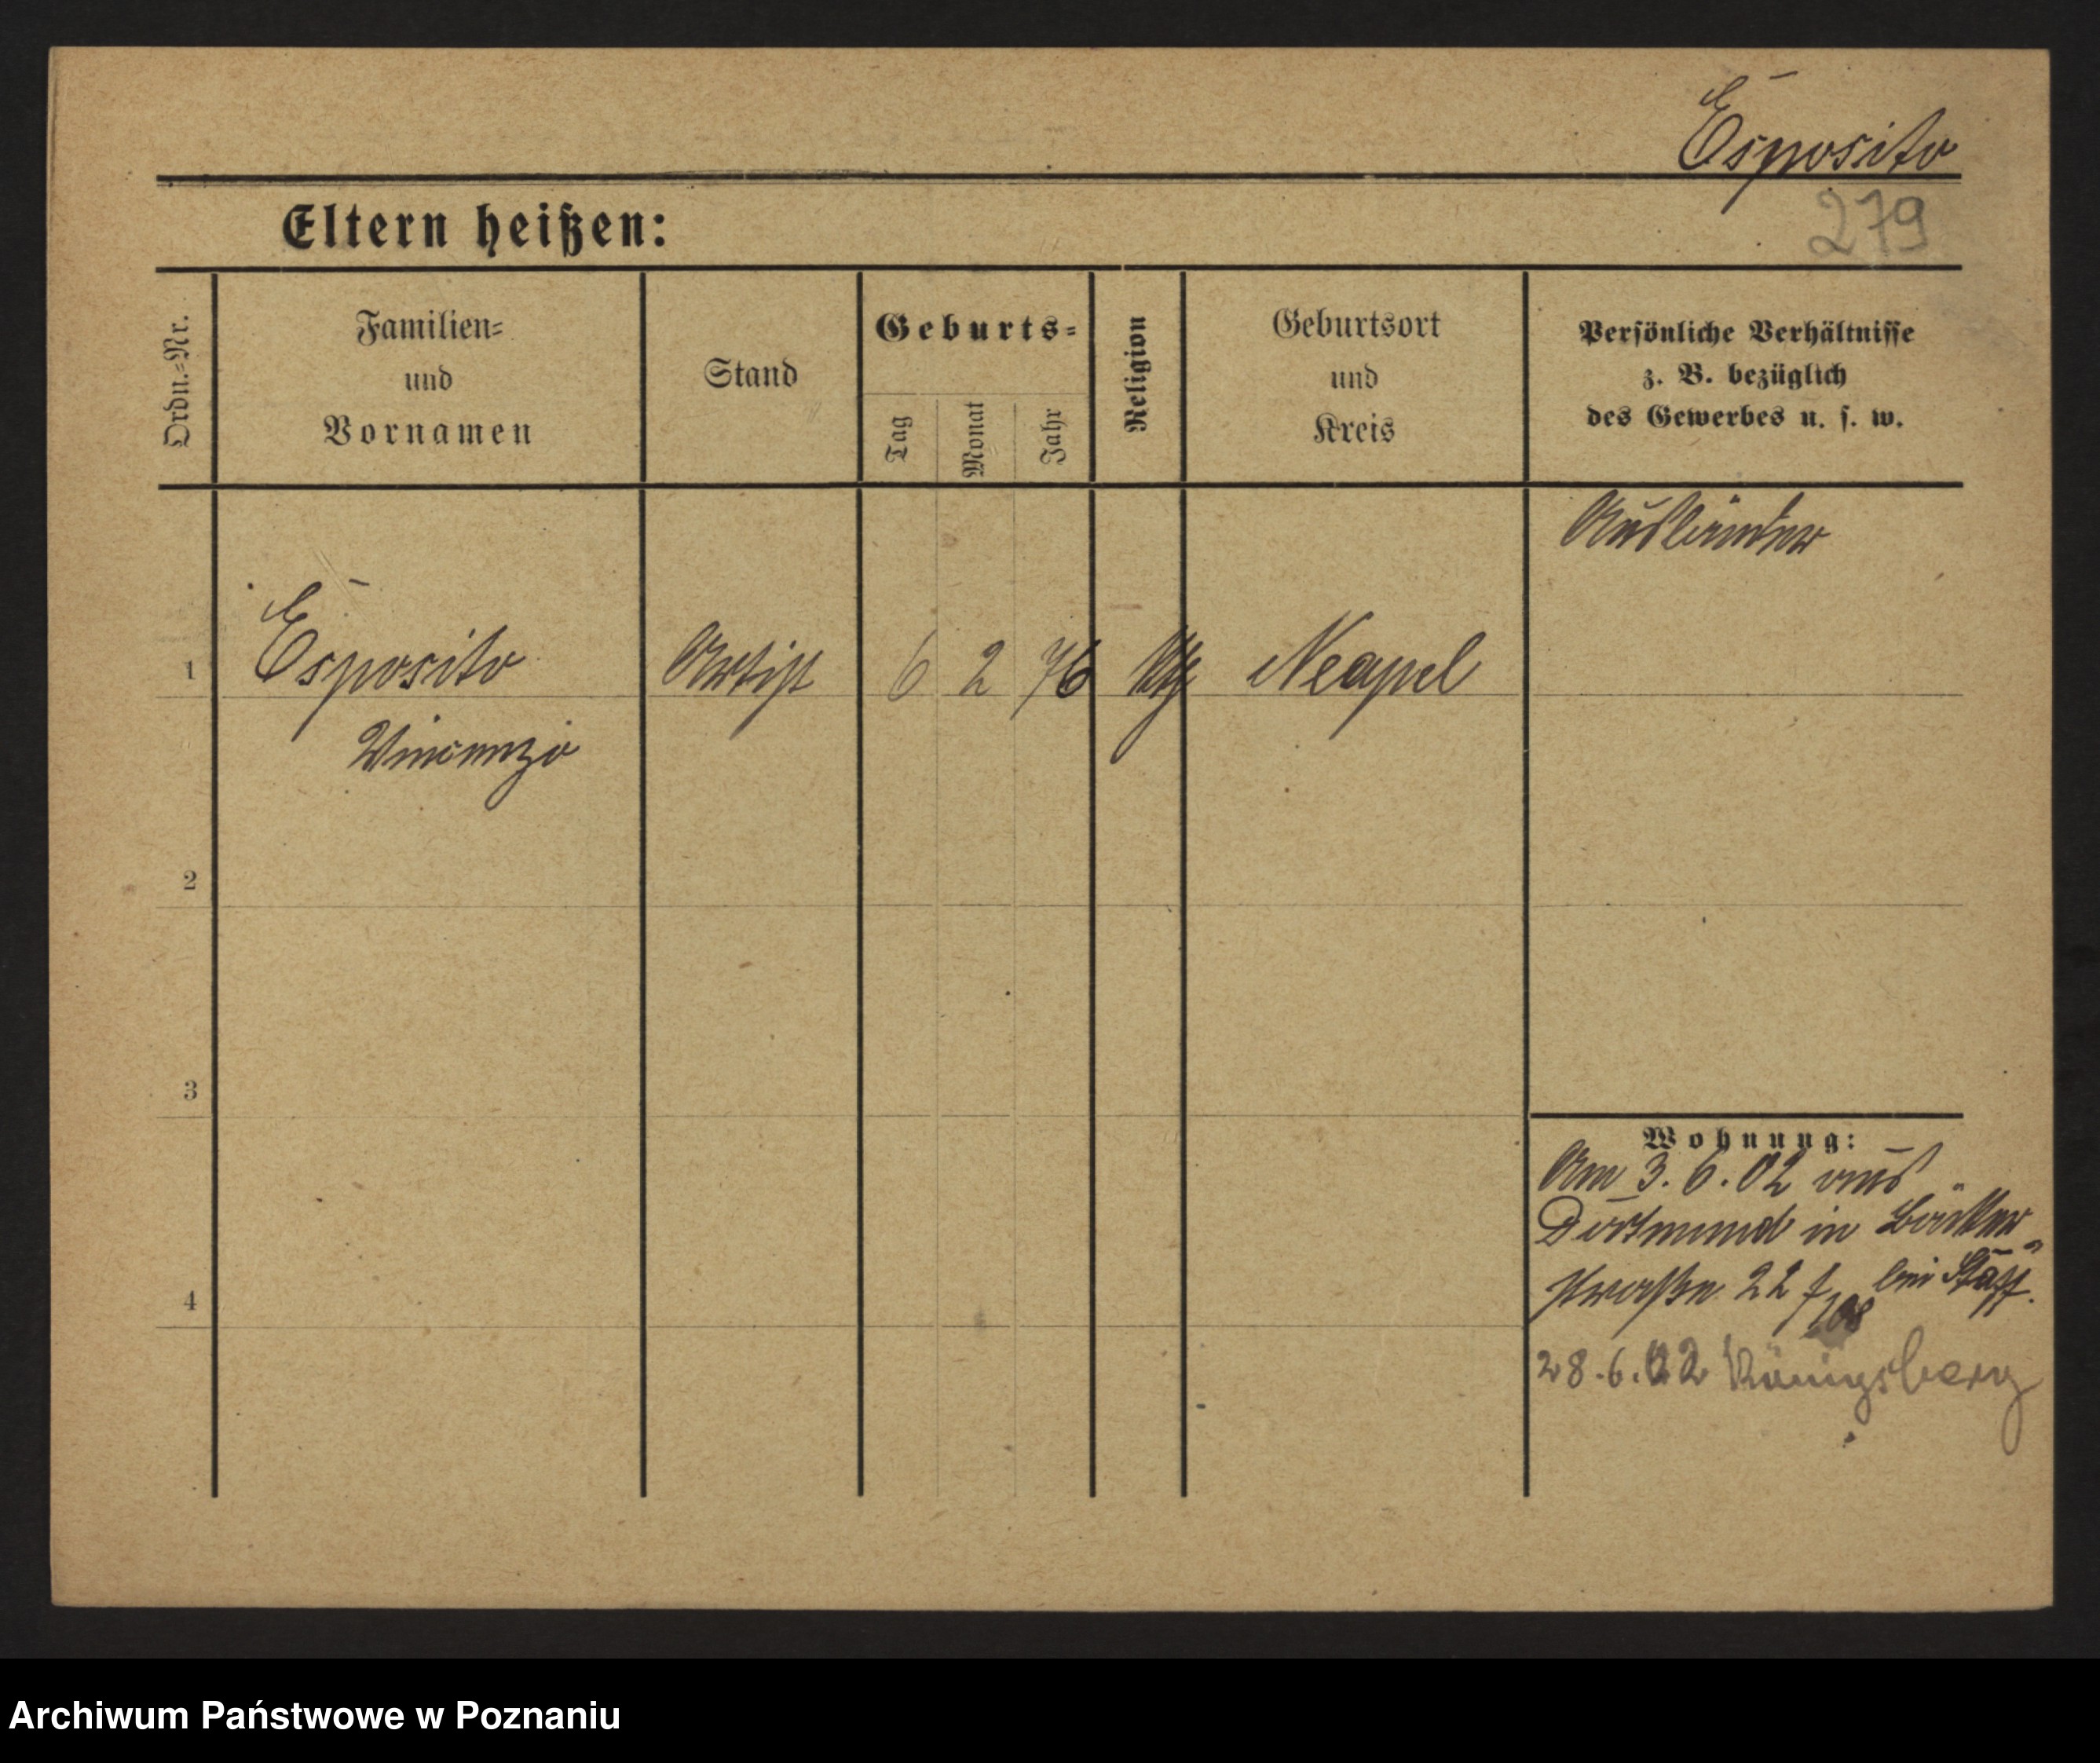 Esposito
279
Eltern heißen:
Ordn.-Nr.
Familien-
und
Vornamen
Stand
Geburts-
Tag
Monat
Jahr
Religion
Geburtsort
und
Kreis
Persönliche Verhältnisse
z. B. bezüglich
des Gewerbes u. s. w.
Ausländer
1 Esposito Artist 6 2 76 Neapel
Vincenzo
2
3
Wohnung:
Am 3. 6. 02 aus
Dortmund in Bäcker-
4 straße 22 bei
28.6.02 Königsberg
Archiwum Państwowe w Poznaniu